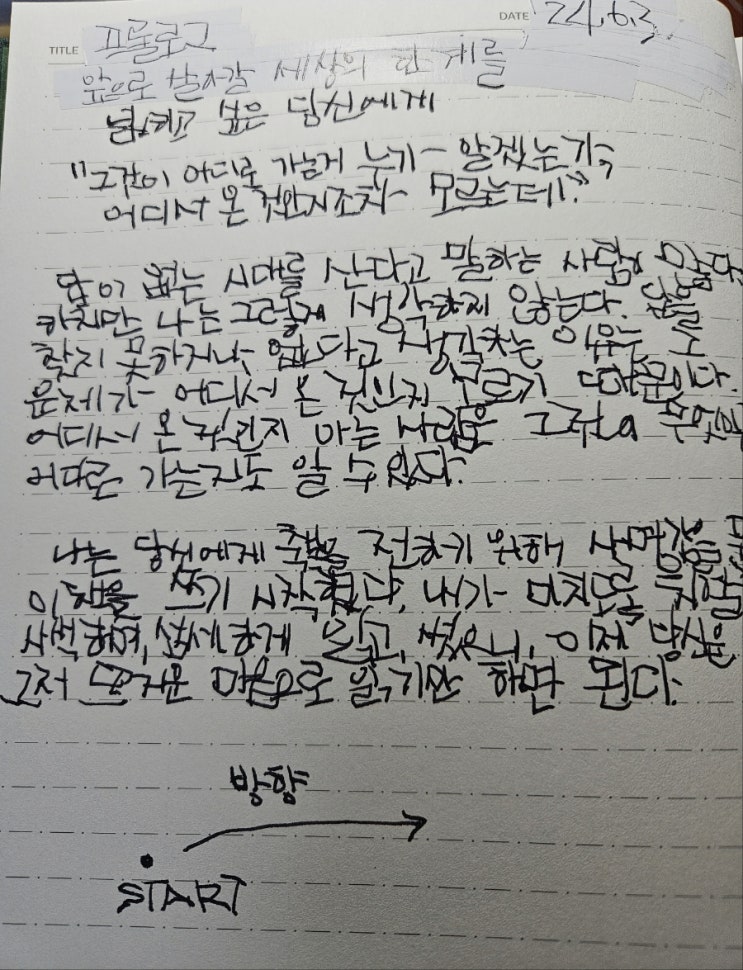 TITLE 프롤로그 DATE 24.6.3
앞으로 살아갈 세상의 한계를
넓히고 싶은 당신에게
"그것이 어디로 가는지 누가 알겠는가,
어디서 온 것인지조차 모르는데!"
답이 없는 시대를 산다고 말하는 사람이 많다
하지만 나는 그렇게 생각하지 않는다. 답을
찾지 못하거나, 없다고 생각하는 이유는
문제가 어디서 온 것인지 모르기 때문이다.
어디서 온 것인지 아는 사람은 그것이 무엇이
어디로 가는지도 알 수 있다.
나는 당신에게 전하기 위해
이 책을 쓰기 시작했다. 내가 미친 듯
사색하며, 섬세하게 듣고, 썼으니, 이제 당신은
그저 뜨거운 마음으로 읽기만 하면 된다.
방향
START